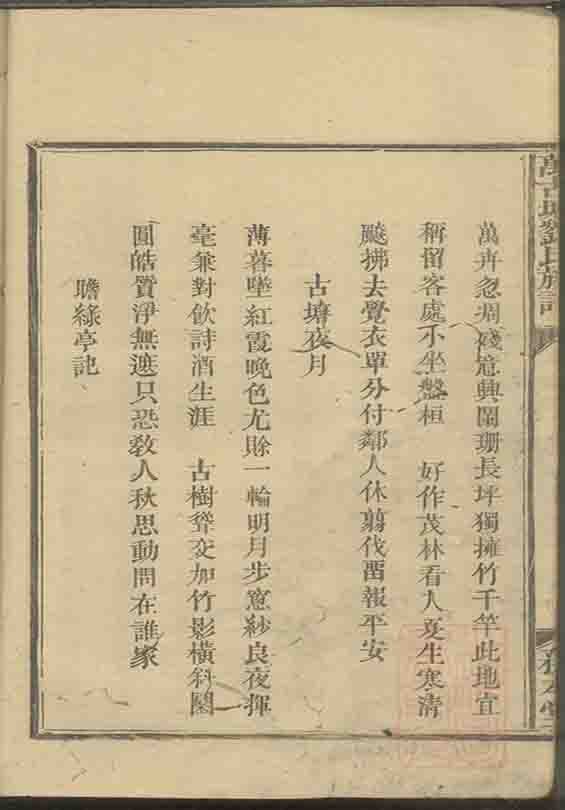 萬卉忽凋殘意興闌珊長坪獨擁竹千竿此地宜
稱留客處不坐盤桓　好作茂林看人夏生寒清
飈拂去覺衣單分付鄰人休翦伐留報平安
古塘夜月
薄暮墜紅霞晚色尤賖一輪明月步窻紗良夜揮
毫兼對飲詩酒生涯　古樹聳交加竹影橫斜團
圓皓質淨無遮只恐敎人秋思動問在誰家
瞻綠亭記
劉氏族